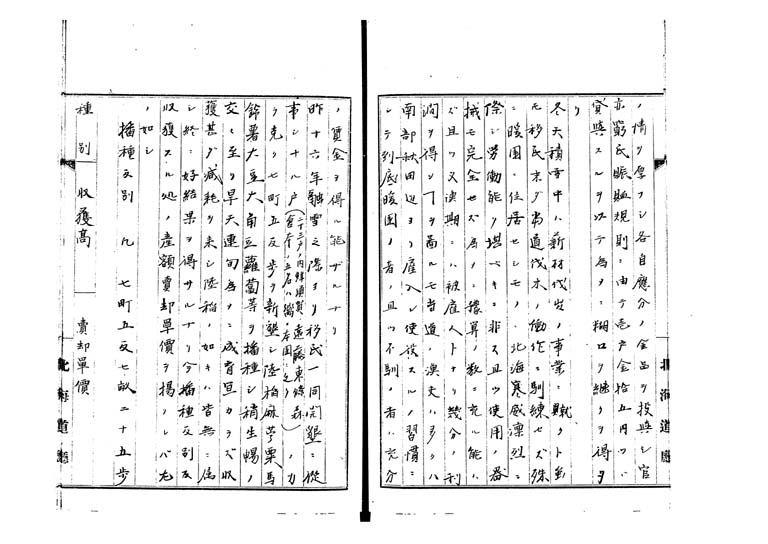 、情ヲ厚フシ各自應分ノ金品ヲ投與シ官
亦窮民賑恤規則ニ由テ壱戸金拾五円ツヽ
貸與スルヲ以テ為ヲニ糊口ヲ継クヲ得タ
リ
冬天積雪中ハ薪材伐出ノ事業ニ就クト雖
モ移民未タ当道伐木ノ働作ニ馴練セス殊
ニ暖国ニ住居セシモノ、北海寒威凛烈ニ
際シ労働能ク堪ヘキニ非ス且ツ使用ノ器
械モ完全セス為メニ操算ノ数ニ充ル能ハ
ス且ツ又漁期ニハ被雇人トナリ幾分ノ利
潤ヲ得ンヿヲ図ルモ当道ノ漁夫ハ多クハ
南部秋田辺ヨリ雇入レ使役スルノ習慣ニ
シテ到底暖国ノ者ノ且ツ不馴ノ者ハ充分
北海道廳
ノ賃金ヲ得ル能ハザルナリ
昨十六年融雪之際ヨリ移民一同開墾ニ従
事シ十ル戸
遠藤東
ノ力
ヲ克ク七町五反歩ヲ新墾シ陸稲麻蕎麦粟馬
鈴薯大豆大角豆蘿蔔等ヲ播種シ稍生暢ノ
交ニ至リ旱天連旬為ヲニ成育亘カラズ収
獲甚ダ減耗ヲ来シ陸稲ノ如キハ皆無ニ属
シ終ニ好結果ヲ得サルナリ今播種反別及
収獲スル処ノ産額賣却單價ヲ掲クレバ左
ノ如シ
播種反別凡七町五反七畝二十五歩
種別 収獲高 賣却單價
北海道廳